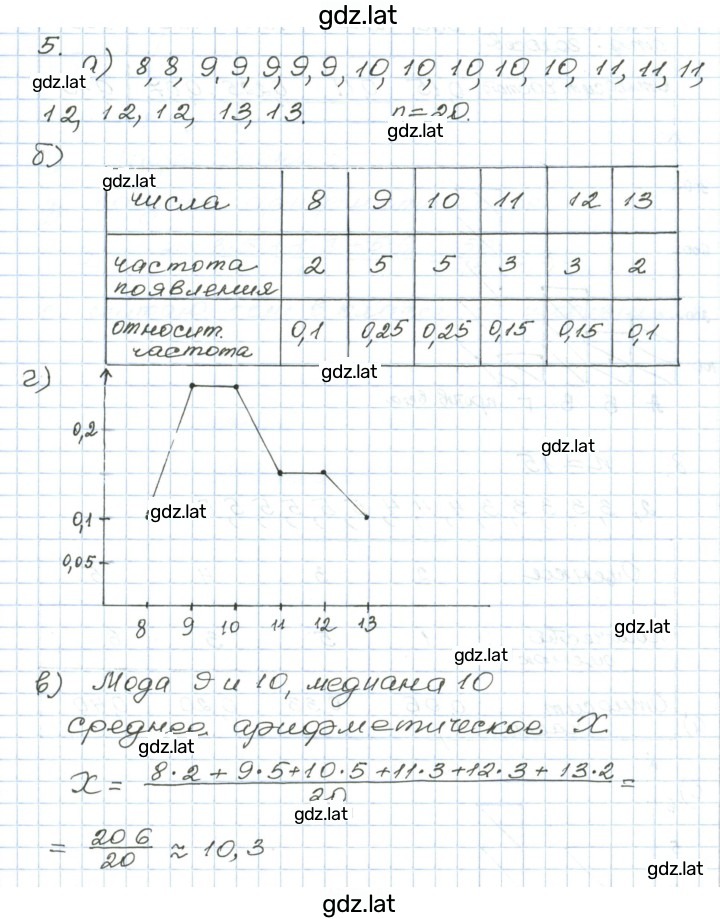 gdz.lat
5.
а) 8, 8, 9, 9, 9, 9, 9, 10, 10, 10, 10, 10, 11, 11, 11,
gdz.lat
12, 12, 12, 13, 13. n = 20.
gdz.lat
б)
gdz.lat
числа 8 9 10 11 12 13
частота появления 2 5 5 3 3 2
относит. частота 0,1 0,25 0,25 0,15 0,15 0,1
gdz.lat
г)
0,2
gdz.lat
0,1
gdz.lat
0,05
8 9 10 11 12 13
gdz.lat
gdz.lat
в) Мода 9 и 10, медиана 10
среднее арифметическое X
gdz.lat
X = 8·2 + 9·5+10·5 +11·3+12·3+ 13·2 / 20 =
gdz.lat
= 206 / 20 ≈ 10,3
gdz.lat
gdz.lat